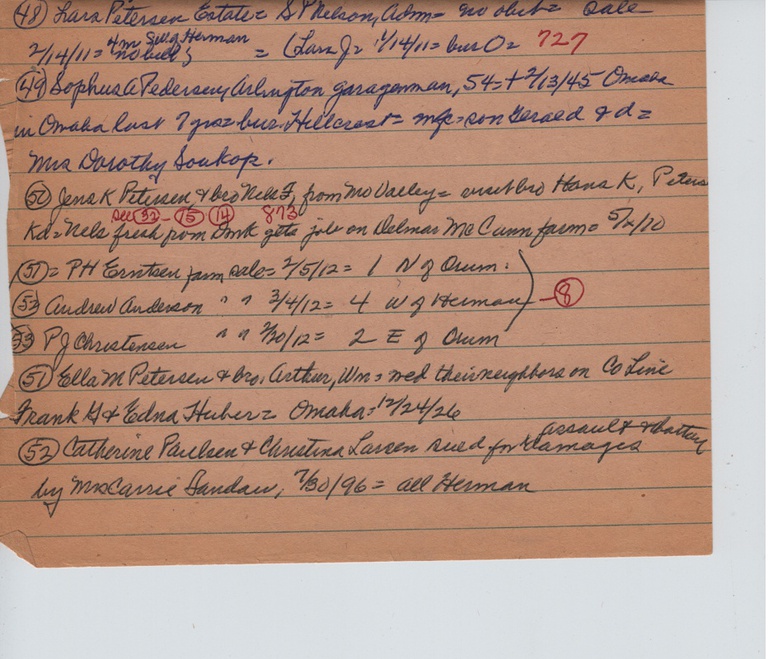 (48) Lars Petersen Estate = S P Nelson, Adm = no obit = sale
2/14/11 = 4 m SW of Herman = (Lars J = 1/14/11 = bur O = 727
no bill;
(49) Sophus A Pedersen, Arlington garageman, 54 = + 2/13/45 Omaha
in Omaha last 7 yrs = bur. Hillcrest = = son Gerald & d =
Mrs Dorothy Soukop.
(50) Jens K Petersen & bro Nels F, from Mo Valley = visit bro Hans K, Peters
see (32) - (15) (14) 873
Kd = Nels fresh from Dmk gets job on Delmar McCann farm = 5/ /10
(51) = P H Erntsen farm sale = 2/5/12 = 1 N of Orum.
(52) Andrew Anderson " " 3/4/12 = 4 W of Herman - (8)
(53) P J Christensen " " 2/20/12 = 2 E of Orum
(51) Ella M Petersen & bro. Arthur, Wm = wed their neighbors on Co Line
Frank G & Edna Huber = Omaha = 12/24/26
(52) Catherine Paulsen & Christina Larsen sued for assault & battery damages
by Mrs Carrie Sandau, 7/30/96 = all Herman